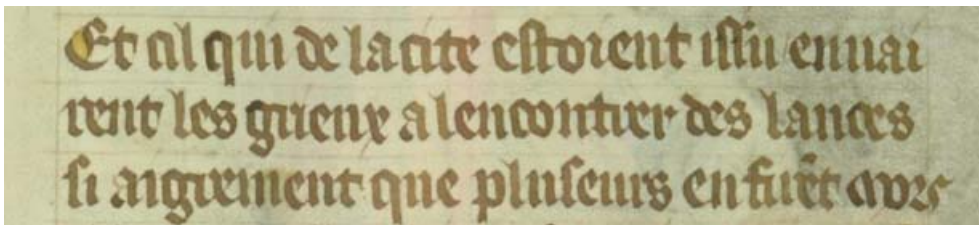 Et cil qui de la cite estoient issu enuai
rent les grieux a lencontrer des lances
si aigrement que pluseurs en furēt mors